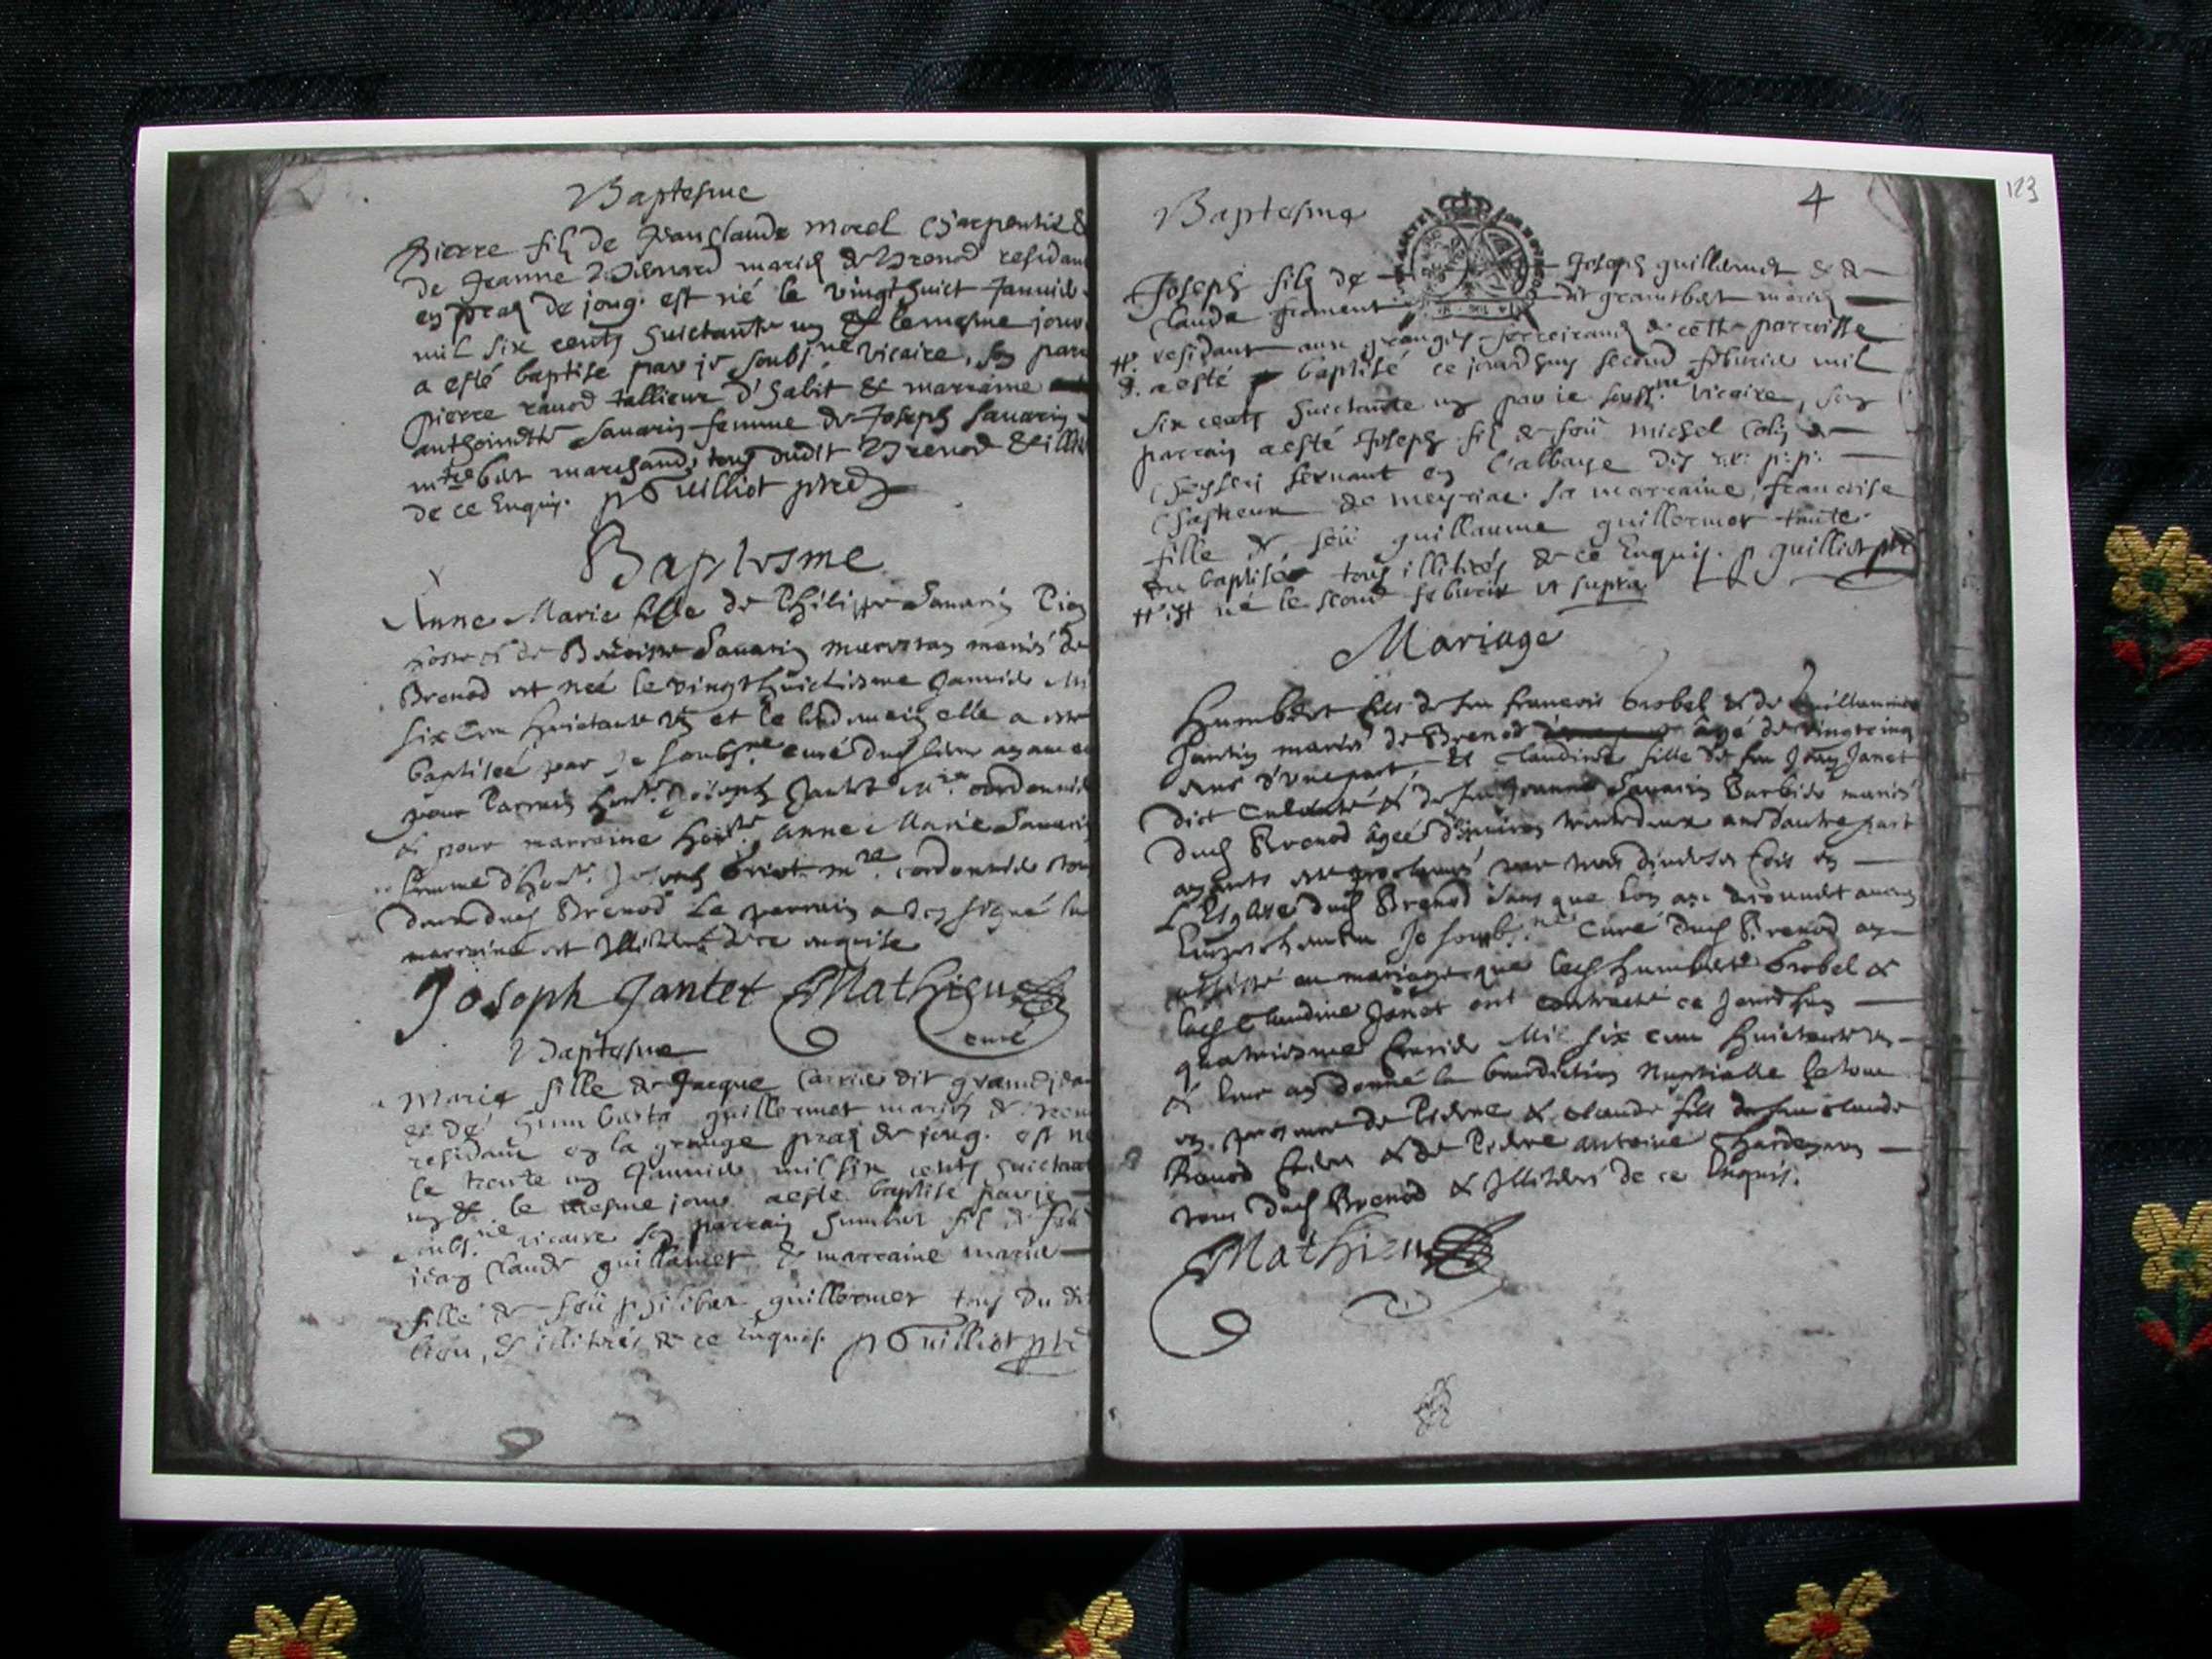 Baptesme
Pierre fils de Jean Claude morel Charpentier &
de Jeanne mariés de Brenod residans
en praz de joug. est né le vingt huict Janvier
mil six cents huictante un & le mesme jour
a esté baptisé par je soubs.né vicaire, son parr
pierre ravod tallieur d'habit & marraine
anthoinette Savarin femme de Joseph Savarin
marchands tous dudit Brenod & illit
de ce Enquis. p Guilliot ptre
Baptesme
Anne Marie fille de Philippe Savarin
& de Benoiste Savarin mariés de
Brenod est neé le vingt huictiesme Janvier Mi
six Cen huictante un et le lendemain elle a esté
baptiseé par Je soubs.né curé dud lieu ayant eu
pour Parrain hon. Joseph Jantet m.re cordonnier
& pour marraine hon.te Anne Marie Savarin
femme d'hon. Joseph m.re cordonnier tou
dud Brenod Le parrain a icy signé la
marraine est Illiterée de ce enquise
Joseph Jantet Mathieu
curé
Baptesme
Marie fille de Jacque Carrier dit grand jean
& de guillermet mariés de Bren
residans en la grange praz de joug. est né
le trente un Janvier mil six cents huictante
un & le mesme jour a esté baptisé par je
soubs.né vicaire son parrain humber fils de feu
jean Claude guillermet & marraine marie
fille de feü philiber guillermet tous du dit
lieu, & illitirés de ce Enquis. p Guilliot ptre
123
4
Baptesme
Joseph fils de Joseph guillermet & de
Claude froment dit mariés
residant aux granges de cette parroisse
a esté baptisé ce jourdhuy second febvrier mil
six cents huictante un par je souss.né vicaire, son
parrain a esté Joseph fils de feü michel Colin de
servant en l'abbaye des rr: p:p:
Chartreux de meyriac. sa marraine, francoise
fille de feü guillaume guillermet tante
du baptisé tous illitirés de ce Enquis. p guilliot ptre
est né le second febvrier ut supra.
Mariage
Humbert fils de feu francois brobel & de Guillaumine
Jantin mariés de Brenod âgé de vingtcinq
ans d'une part, et Claudine fille de feu Jean Janet
dict & de feu Jeanne Savarin mariés
dud Brenod âgeé d'environ trentedeux ans d'autre part
ayants esté proclamés par trois diverses fois en
L'Eglise dud Brenod sans que l'on aye descouvert aucun
Empeschement Je soub.né Curé dud Brenod ay
assisté au mariage que led humbert brobel &
lad Claudine Janet ont contracté ce Jourdhuy
quatriesme fevrier Mil six cens huictante un
& leur ay donné la benediction Nuptialle le tout
en presence de Pierre & claude fils de feu claude
Ravod & de Pierre antoine
tous dud Brenod & Illiterés de ce Enquis.
Mathieu